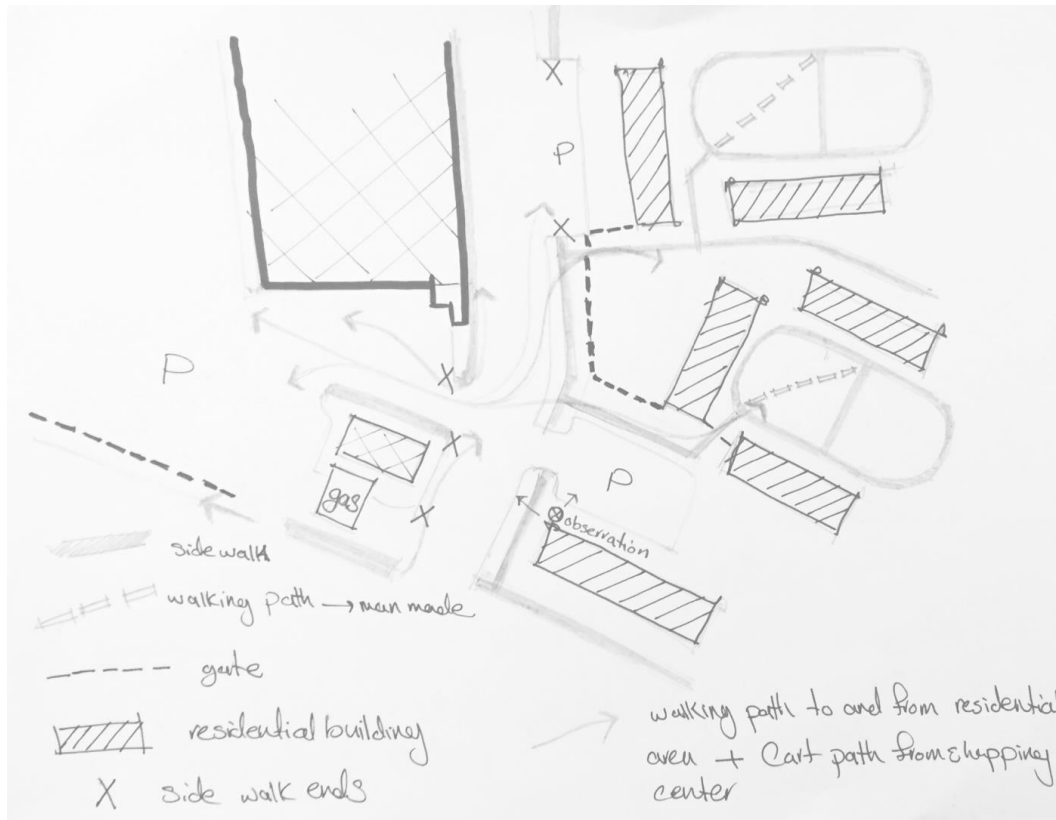 P
P
P
gas
observation
side walk
walking path → man made
gate
residential building
X side walk ends
walking path to and from residential
area + Cart path from shopping
center